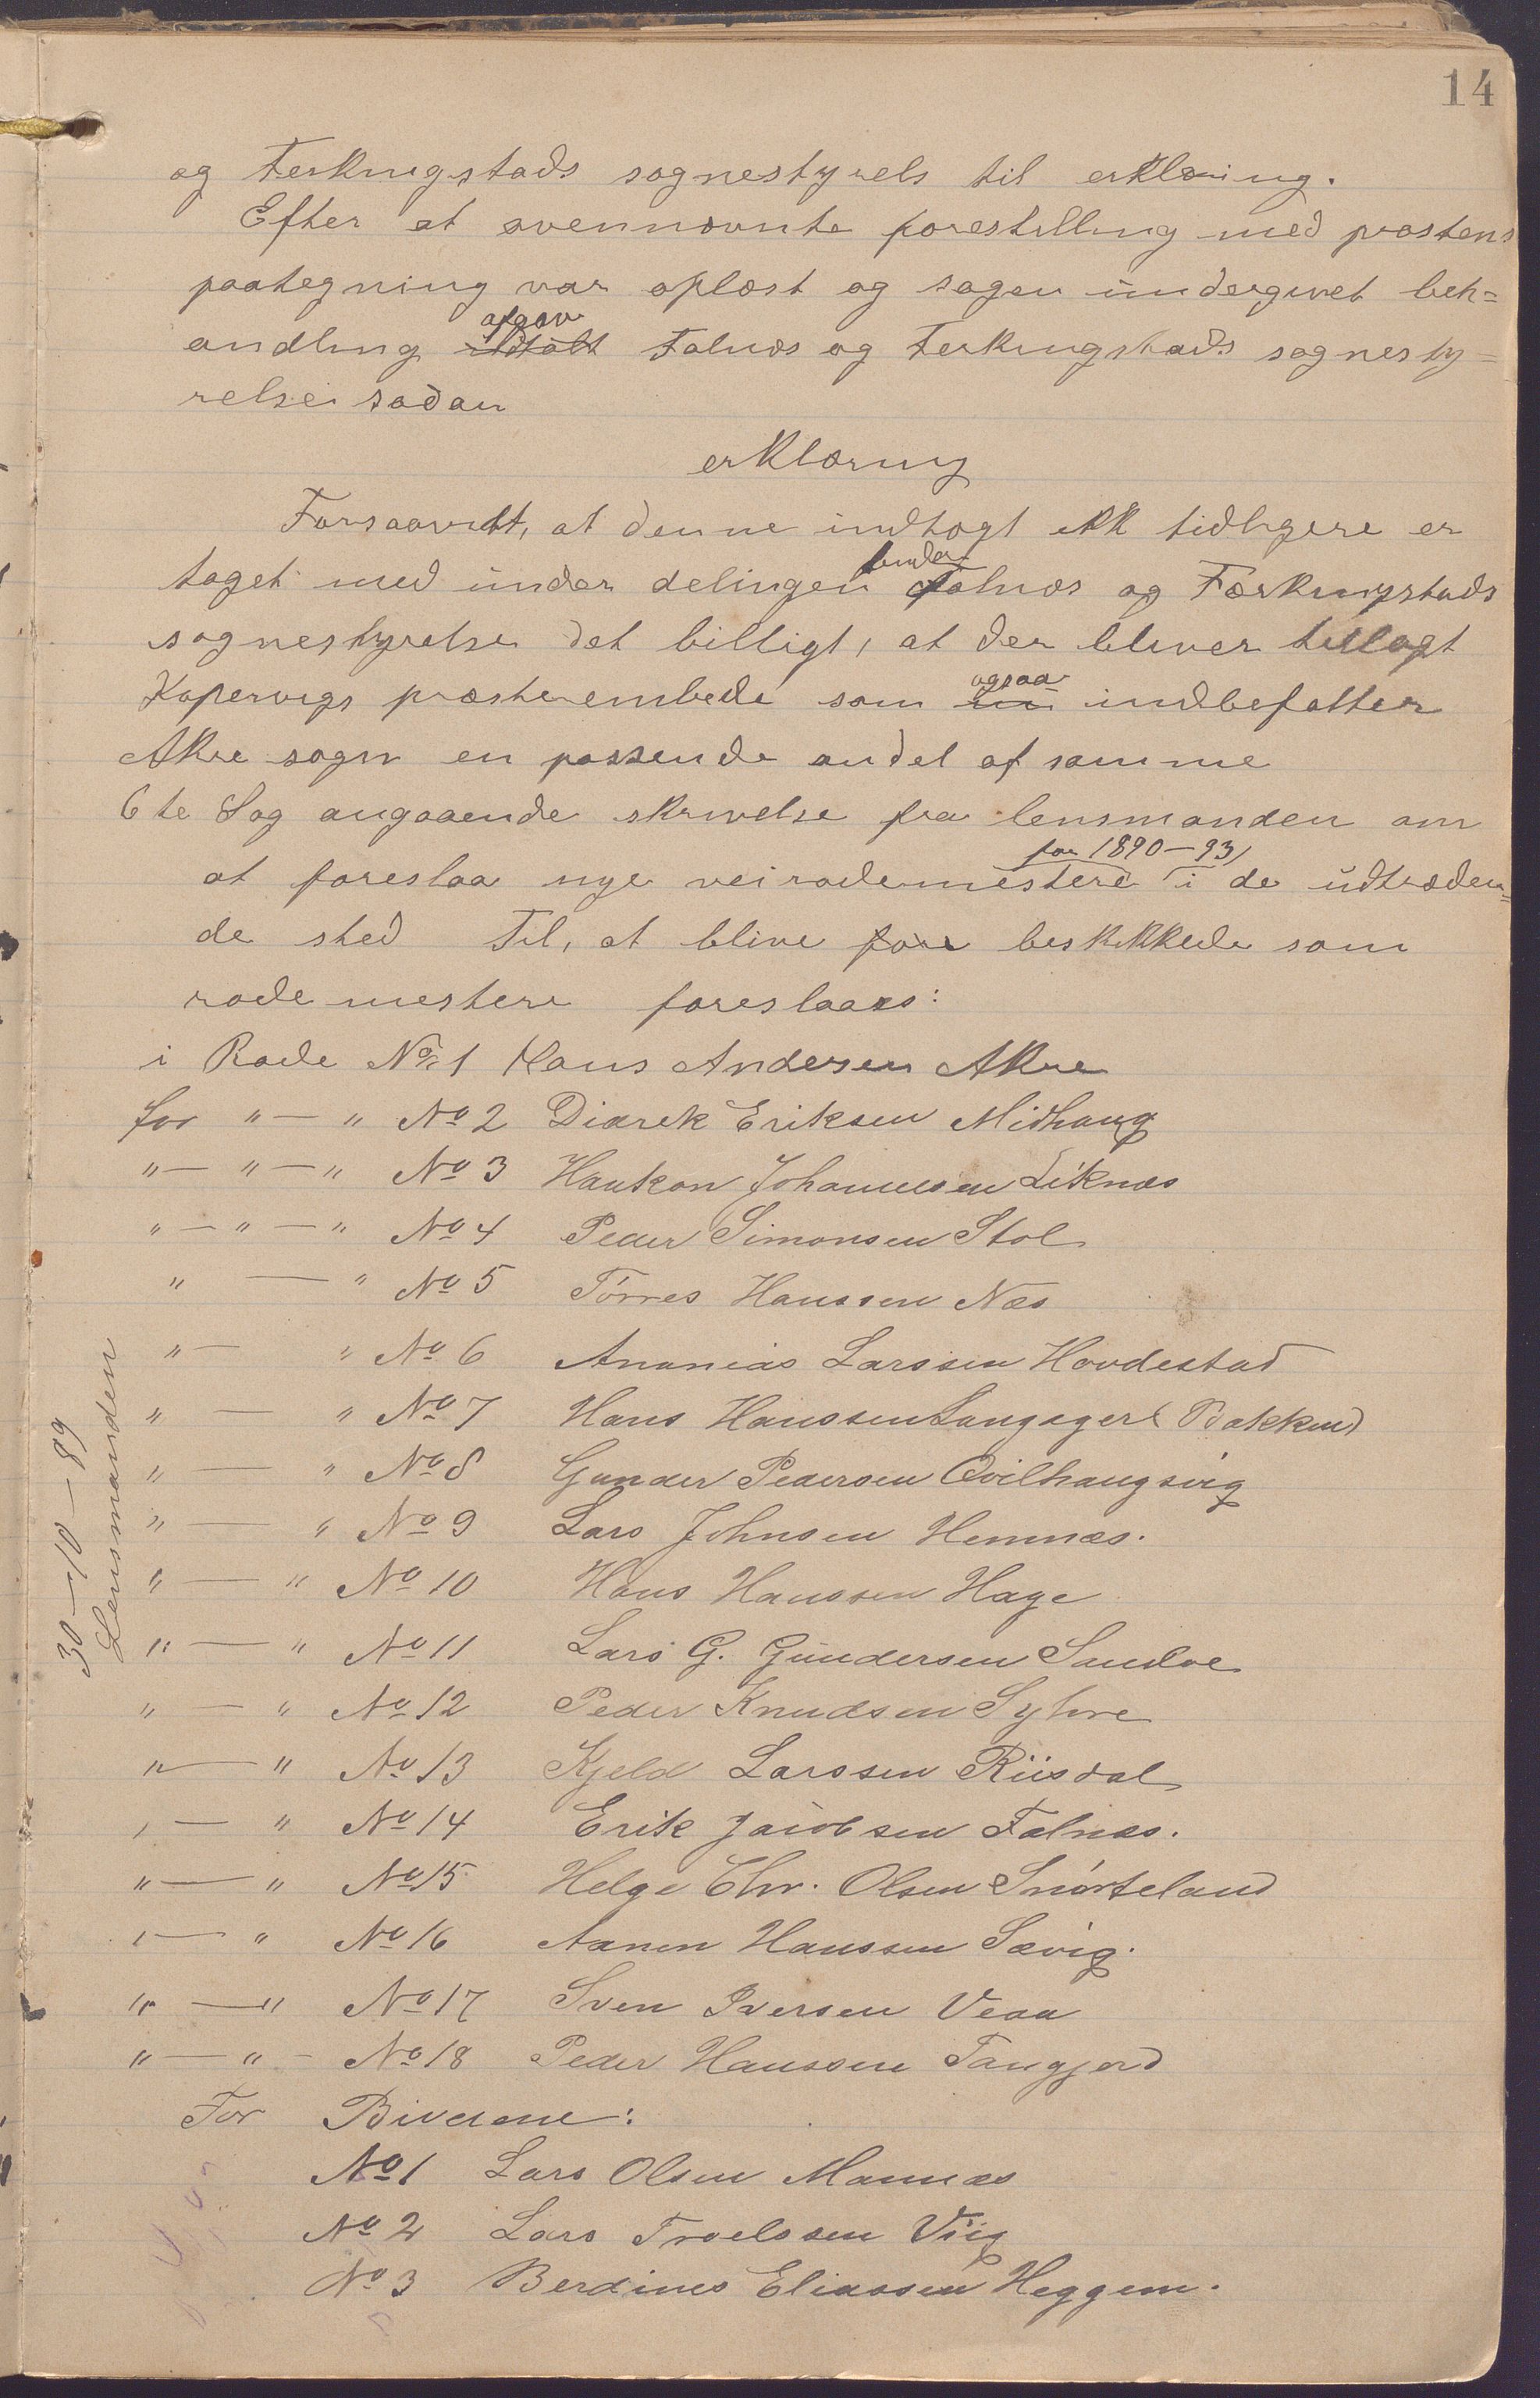 14
og Ferkingstads sognestyrels til erklæring.
Efter at ovennævnte forestilling med prostens
paategning var oplæst og sagen undergivet beh=
andling afgav Falnæs og Ferkingstads sognesty=
relse sadan
erklæring
Forsaavidt, at denne indtægt ikk tidligere er
taget med under delingen finder Falnæs og Færkingstads
sognestyrelse det billigt, at der bliver tillagt
Kopervigs præsteembede som ogsaa indbefatter
Akre sogn en passende andel af samme
6te Sag angaaende skrivelse fra lensmanden om
at foreslaa nye veirodemestere for 1890–93 i de udtræden=
de sted Til, at blive beskikkede som
rodemestere foreslaaes:
i Rode No 1 Hans Andersen Akre
for " — " No 2 Didrek Eriksen Midhaug
" — " — " No 3 Haakon Johannesen Liknæs
" — " — " No 4 Peder Simonsen Stol
" — " No 5 Törres Hanssen Næs
" — " No 6 Ananias Larssen Hovdestad
" — " No 7 Hans Hanssen Langager (Bakken)
" — " No 8 Gunder Pedersen Qvilhaugsvig
" — " No 9 Lars Johnsen Hemnæs.
" — " No 10 Hans Hanssen Hage
" — " No 11 Lars G. Gundersen Sandve
" — " No 12 Peder Knudsen Syhre
" — " No 13 Kjeld Larssen Riisdal
" — " No 14 Erik Jacobsen Falnæs.
" — " No 15 Helge Chr. Olsen Snörteland
" — " No 16 Aanen Hanssen Sævig.
" — " No 17 Sven Iversen Veaa
" — " No 18 Peder Hanssen Tangjerd
For Biveiene:
No 1 Lars Olsen Mannæs
No 2 Lars Troelssen Viig
No 3 Berdines Eliassen Heggem.
30–10–89
Lensmanden